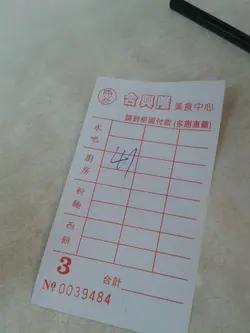 合興隆 美食中心
請到柜面付款 (多謝惠顧)
水吧
41
廚房
粉麵
西餅
3 合計
No 0039484